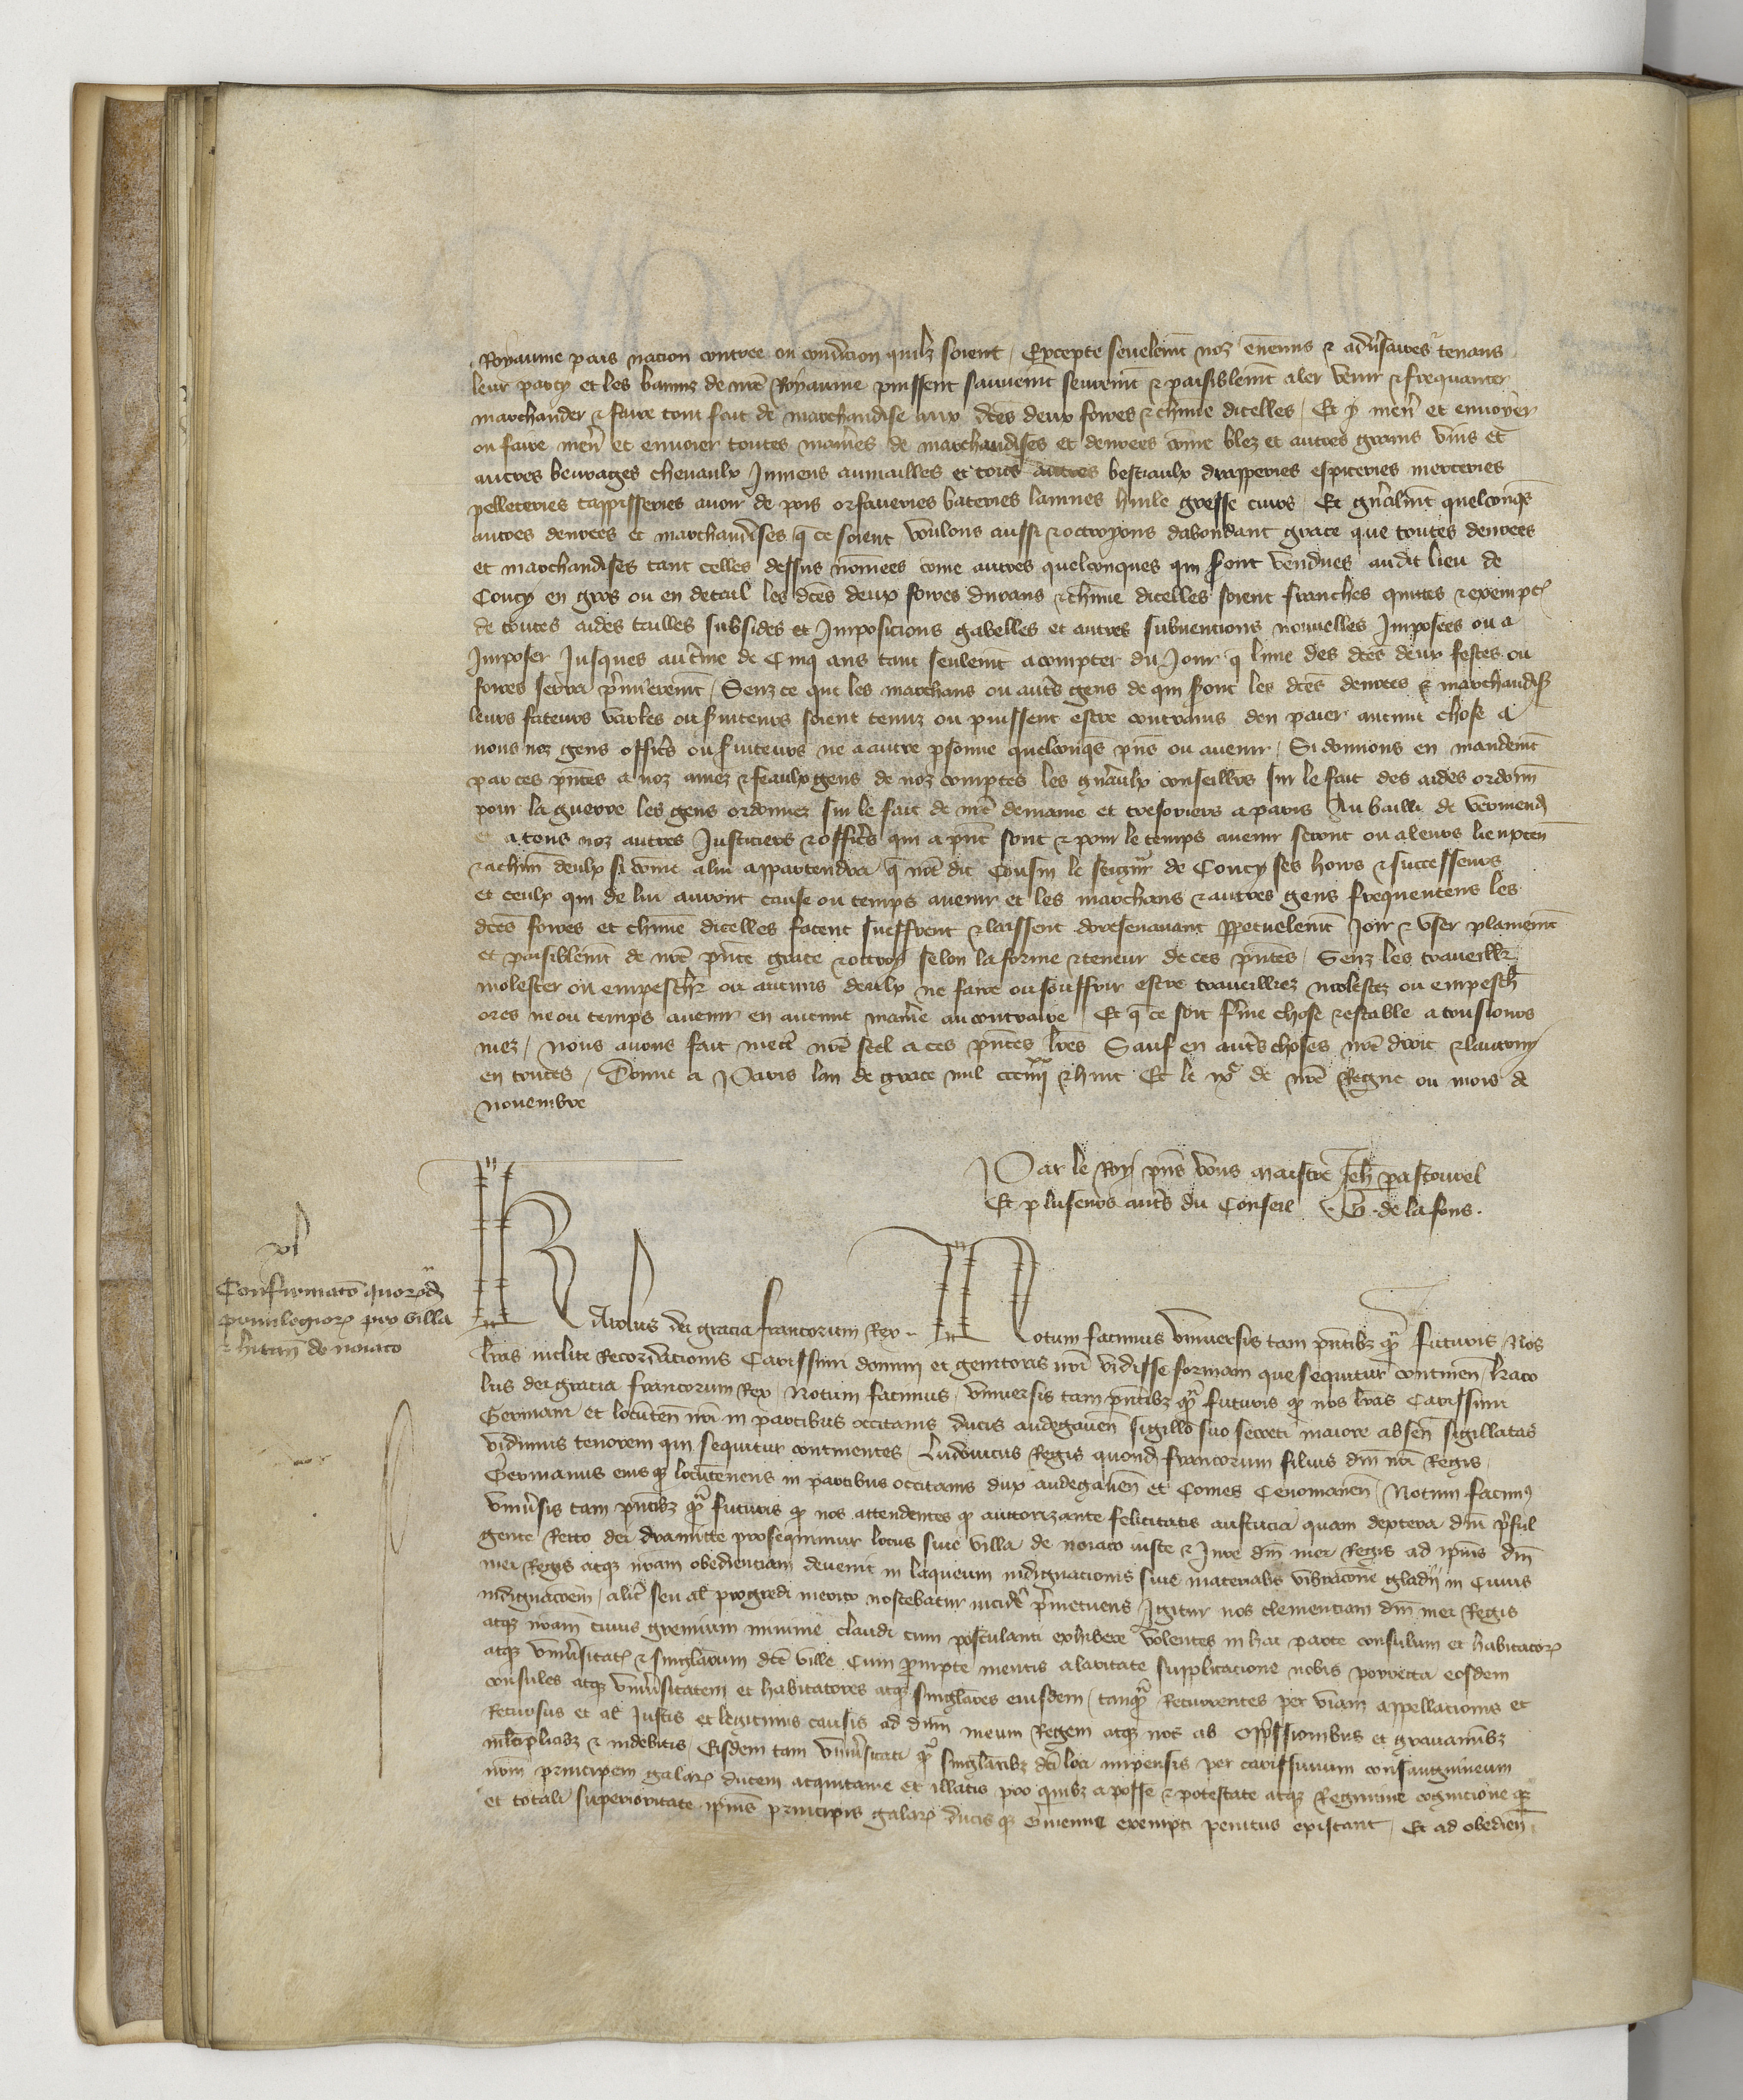 Royaume pais nacion contree ou condicion quilz soient / Excepte seulemt noz ennemis & adversaires tenans
leur party et les banniz de nre Royaume puissent sauvemt seuremt & paisiblemt aler venir & frequanter
marchander & faire tout fait de marchandise aux dces deux foires & chune dicelles / Et y men et envoyer
ou faire men et envoier toutes manies de marchandises et denrees come blez et autres grains vins et
autres beuvrages chevaulx Jumens aumailles et tous autres bestiaulx drapperies espiceries merceries
pelleteries tappisseries avoir de pois orfaveries bateries lainnes huile gresse cuirs / Et gnalmt quelconqs
autres denrees et marchandises q ce soient voulons aussi & octroyons dabondant grace que toutes denrees
et marchandises tant celles dessus nomees come autres quelconques qui seront vendues audit lieu de
Coucy en gros ou en detail les dces deux foires durans & chune dicelles soient franches quittes & exempt
de toutes aides tailles subsides et Imposicions gabelles et autres subvencions nouvelles Imposees ou a
Imposer Jusques au tme de Cinq ans tant seulemt a compter du Jour q lune des dces deux festes ou
foires serra pmieremt / Senz ce que les marchans ou auts gens de qui seront les dces denrees & marchandis
leurs fateurs varles ou suiteurs soient tenuz ou puissent estre contrains den paier aucune chose a
nous noz gens officis ou suiteurs ne a autre psonne quelconqs pns ou avenir / Si donnons en mandemt
par ces pntes a noz amez & feaulx gens de noz comptes les gnaulx conseillrs sur le fait des aides ordonn
pour la guerre les gens ordonnez sur le fait de nre demaine et tresoriers a paris Au bailli de vermend
et a tous noz autres Justiciers & officis qui a pnt sont & pour le temps avenir seront ou a leurs lieuxten
& a chun deulx si come a lui appartendra q nre dit Cousin le seigneur de Coucy ses hoirs & successeurs
et ceulx qui de lui auront cause ou temps avenir et les marchans & autres gens frequentens les
dces foires et chune dicelles facent sueffrent & laissent doresenavant ppetuelemt Joir & user plainemt
et paisiblemt de nre pnte grace & octroy selon la forme & teneur de ces pntes / Senz les traveillr
molester ou empeschr ou aucuns deulx ne faire ou souffrir estre travailliez molestez ou empesch
ores ne ou temps avenir en aucune manie au contraire Et q ce soit ferme chose & estable a tousiours
mez / nous avons fait mectr nre seel a ces pntes lres Sauf en auts choses nre droit & lautruy
en toutes / Donne a Paris lan de grace mil ccciiii xx & huit Et le ix de nre Regne ou mois de
novembre
Par le Roy pns vous maistre Jeh pastourel
Et pluseurs auts du Conseil G. de la fons.
vl
Confirmato quorad
privilegiorum pro villa
& hitan de noiaco
Karolus dei gracia francorum Rex .. Notum facimus universis tam pntibz qua futuris Nos
lras inclite Recordacionis Carissimi domini et genitoris nri vidisse formam que sequitur continen / karo
lus dei gracia francorum Rex / Notum facimus / universis tam pntibz qua futuris q nos lras Carissimi
Germani et locuten nri in partibus occitanis ducis andegaven sigillo suo secreti maiore absen sigillatas
vidimus tenorem qui sequitur continentes / Ludovicus Regis quond francorum filius dni nri Regis
Germanus eiusq locutenens in partibus occitanis dux andegaven et Comes Cenomanen / Notum facimus
univsis tam pntibz qua futuris q nos attendentes q auctorizante felicitatis astucia quam deptera dni psul
gente Retro dei dramitte prosequimur locus sive villa de noiaco iuste & Jure dni mei Regis ad ipius dni
mei Regis atqz nram obedienciam devenit in laqueum indignacionis sive materialis vibracione gladii in Cuius
indignacoem / alitr seu al progredi merito noscebatur incidr pmetuens Igitur nos clemenciam dni mei Regis
atqz nram cuius gremium minime claudi cum postulanti exhibere volentes in hac parte consulum et habitator
atqz univsitat & singlarum dce ville Cum prompte mentis alaritate supplicacione nobis porrecta eosdem
consules atqz univsitatem et habitatores atqz singlares eiusdem / tanqua Recurrentes per viam appellacionis et
Recursus et al Justis et legitimis causis ad dnm meum Regem atqz nos ab oppssionibus et gravaminibz
mltiplicibz & indebitis / Eisdem tam univsitati qua singlaribz dci loci impensis per carissimum consanguineum
nrm principem galar ducem acquitanie et illatis pro quibz a posse & potestate atqz Regimine cognicione qz
et totali superioritate ipius principis galar ducis qz Guienne exempti penitus existant / Et ad obedien